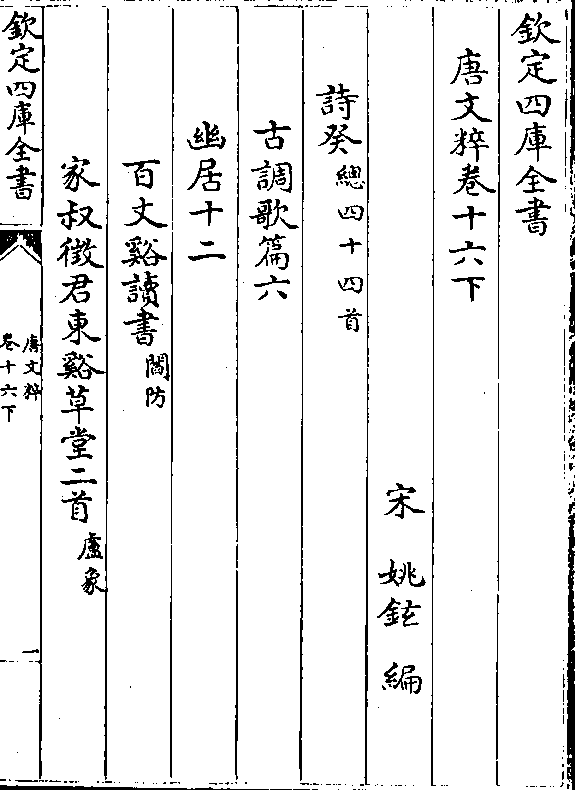 欽定四庫全書
唐文粹卷十六下
宋 姚鉉 編
詩癸總四十四首
古調歌篇六
幽居十二
百丈谿讀書閻防
家叔徴君東谿草堂二首盧象
欽定四庫全書
唐文粹
卷十六下
一